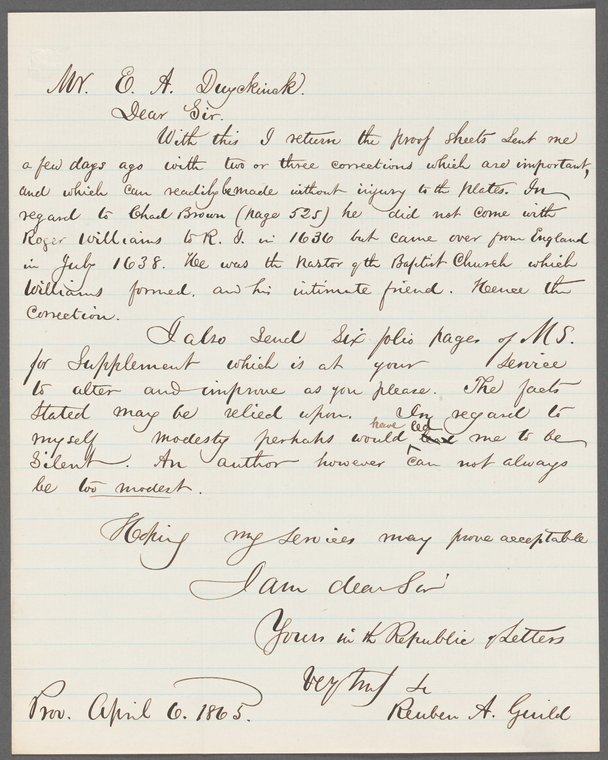 Mr. E. A. Duyckinck.
Dear Sir.
With this I return the proof sheets sent me
a few days ago with two or three corrections which are important,
and which can readily be made without injury to the plates. In
regard to Chad Brown (page 525) he did not come with
Roger Williams to R. I. in 1636 but came over from England
in July 1638. He was the Pastor of the Baptist Church which
Williams formed, and his intimate friend. Hence the
correction.
I also send six folio pages of MS.
for Supplement which is at your service
to alter and improve as you please. The facts
stated may be relied upon. In regard to
have led
myself modesty perhaps would me to be
silent. An author however can not always
be too modest.
Hoping my services may prove acceptable
I am dear Sir
Yours in the Republic of Letters
Very truly &c
Prov. April 6. 1865. Reuben A. Guild